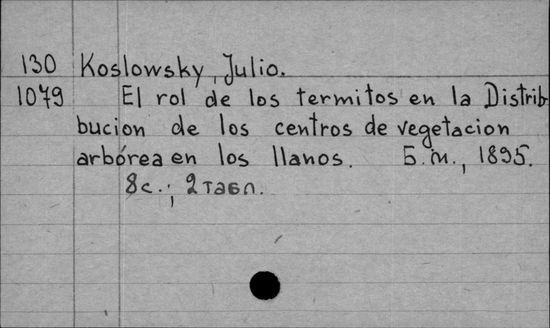 130 Koslowsky, Julio.
1079 El rol de los termitos en la Distrib-
bucion de los centros de vegetacion
arbórea en los llanos. Б.м., 1895.
8с.; 2 табл.